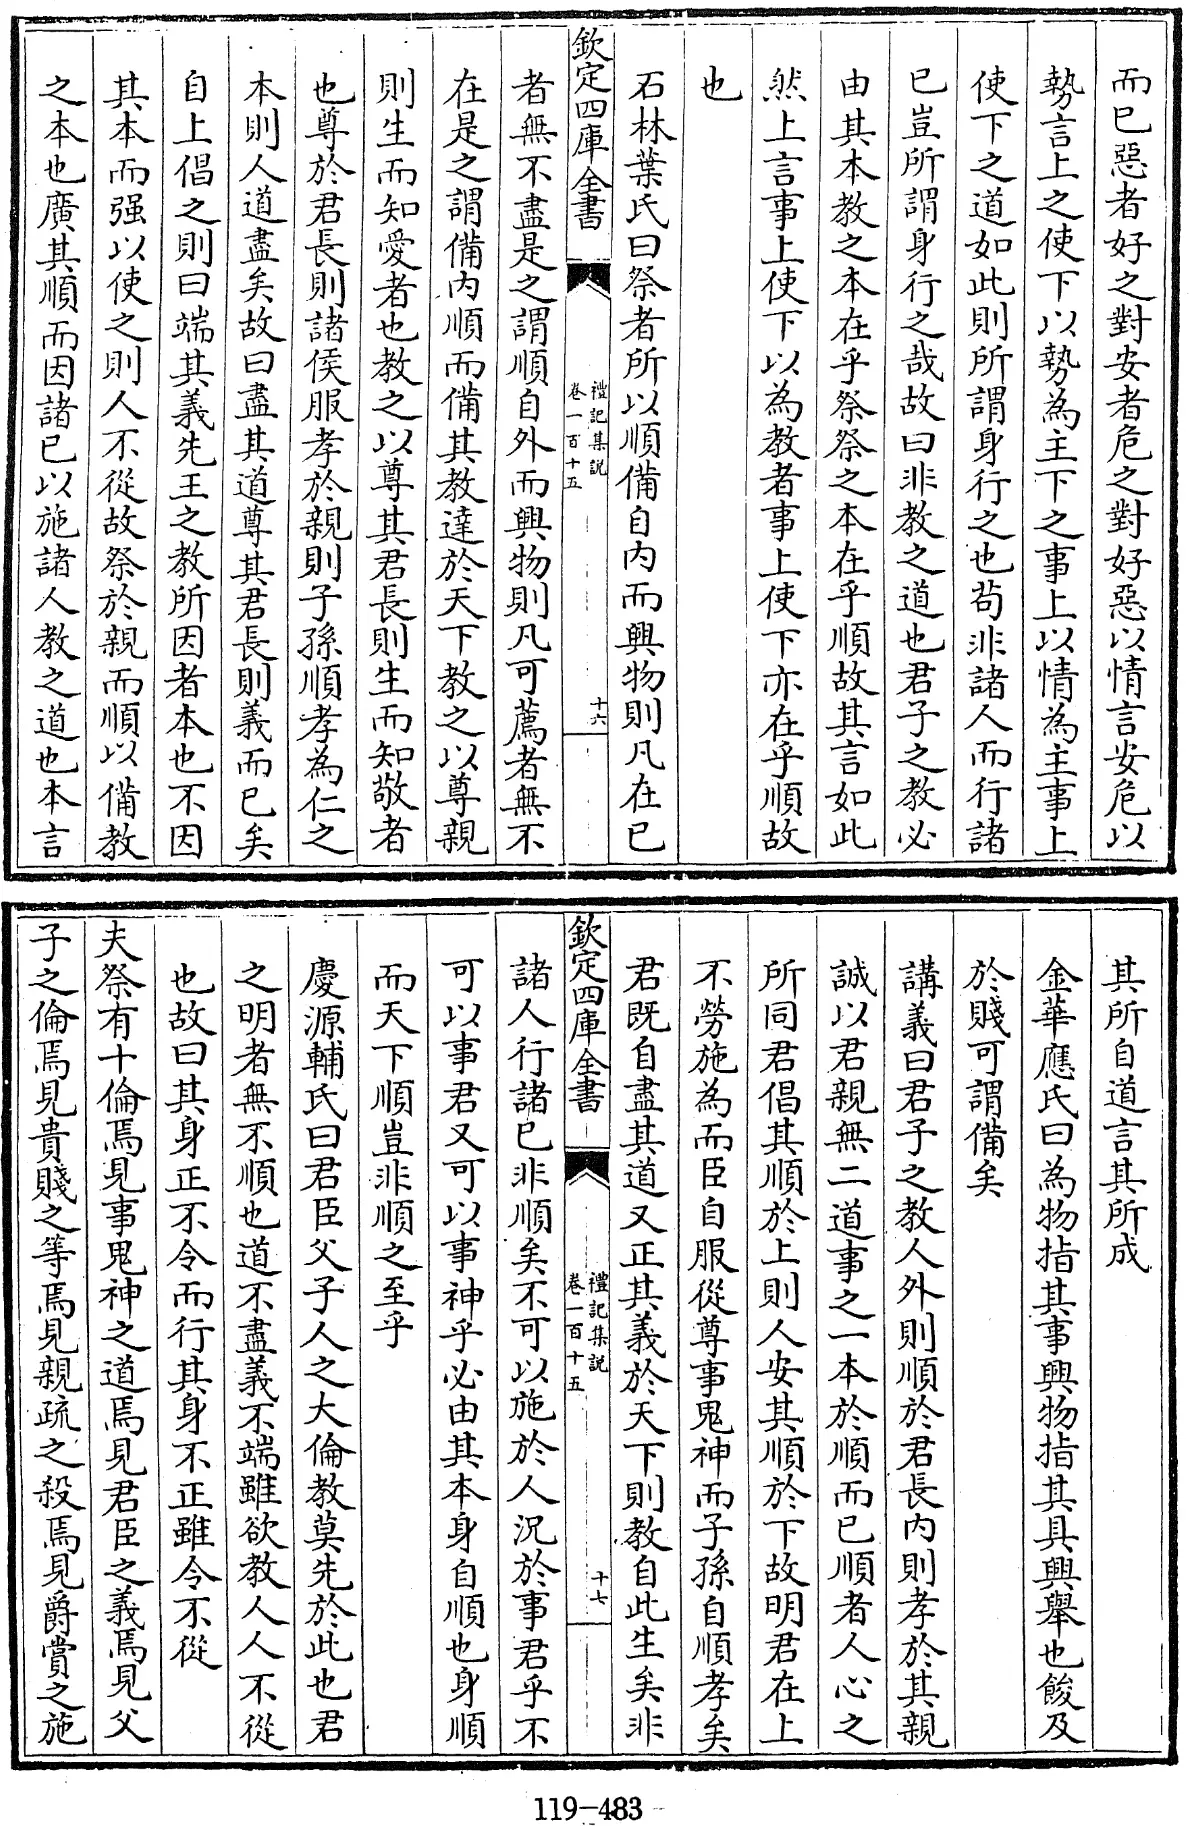 而已惡者好之對安者危之對好惡以情言安危以
勢言上之使下以勢為主下之事上以情為主事上
使下之道如此則所謂身行之也茍非諸人而行諸
已豈所謂身行之哉故曰非教之道也君子之教必
由其本教之本在乎祭祭之本在乎順故其言如此
然上言事上使下以為教者事上使下亦在乎順故
也
石林葉氏曰祭者所以順備自内而興物則凡在已
欽定四庫全書
禮記集説
卷一百十五
十六
者無不盡是之謂順自外而興物則凡可薦者無不
在是之謂備内順而備其教達於天下教之以尊親
則生而知愛者也教之以尊其君長則生而知敬者
也尊於君長則諸侯服孝於親則子孫順孝為仁之
本則人道盡矣故曰盡其道尊其君長則義而已矣
自上倡之則曰端其義先王之教所因者本也不因
其本而强以使之則人不從故祭於親而順以備教
之本也廣其順而因諸已以施諸人教之道也本言
其所自道言其所成
金華應氏曰為物指其事興物指其具興舉也餕及
於賤可謂備矣
講義曰君子之教人外則順於君長内則孝於其親
誠以君親無二道事之一本於順而已順者人心之
所同君倡其順於上則人安其順於下故明君在上
不勞施為而臣自服從尊事鬼神而子孫自順孝矣
君既自盡其道又正其義於天下則教自此生矣非
欽定四庫全書
禮記集説
卷一百十五
十七
諸人行諸已非順矣不可以施於人況於事君乎不
可以事君又可以事神乎必由其本身自順也身順
而天下順豈非順之至乎
慶源輔氏曰君臣父子人之大倫教莫先於此也君
之明者無不順也道不盡義不端雖欲教人人不從
也故曰其身正不令而行其身不正雖令不從
夫祭有十倫焉見事鬼神之道焉見君臣之義焉見父
子之倫焉見貴賤之等焉見親疏之殺焉見爵賞之施
119-483